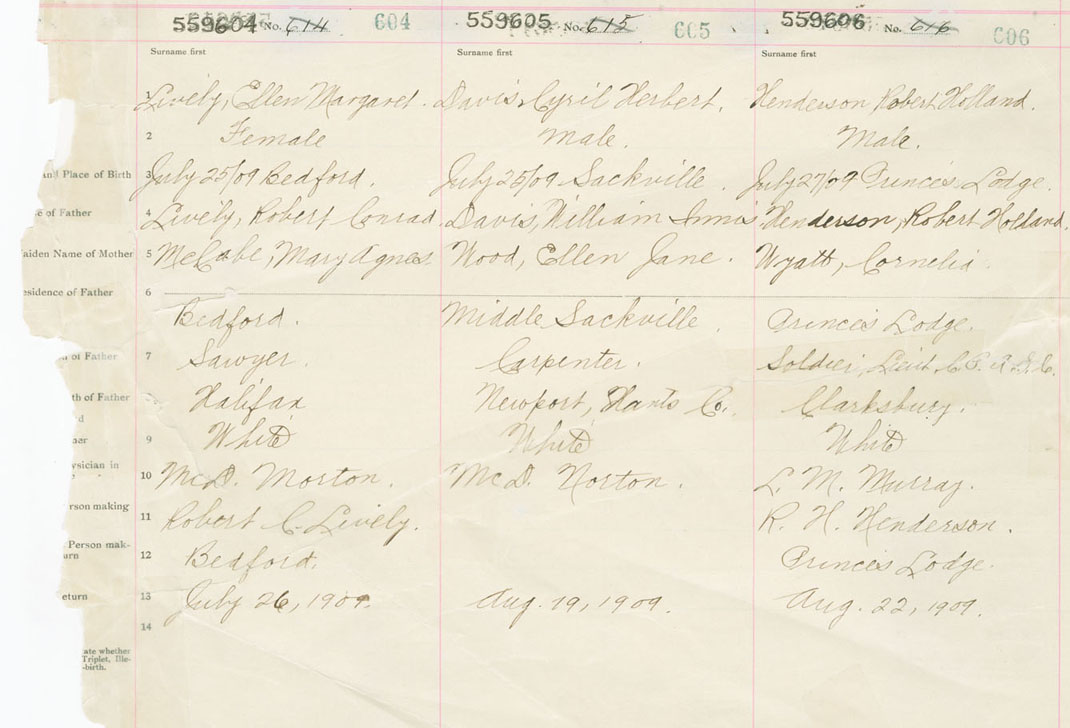 559604 No. 614 604 559605 No. 615 605 559606 No. 616 606
Surname first Surname first Surname first
1 Lively, Ellen Margaret. Davis, Cyril Herbert. Henderson Robert Holland.
2 Female Male. Male.
and Place of Birth 3 July 25/09 Bedford. July 25/09 Sackville. July 27/09 Princes Lodge.
e of Father 4 Lively, Robert Conrad. Davis, William Innis. Henderson, Robert Holland.
aiden Name of Mother 5 McCabe, Mary Agnes. Wood, Ellen Jane. Wyatt, Cornelia.
esidence of Father 6
Bedford. Middle Sackville. Princes Lodge.
of Father 7 Sawyer. Carpenter. Soldier, Lieut.
th of Father Halifax Newport, Hants Co. Clarksbury.
d
her 9 White White White
ysician in 10 McD. Morton. McD. Norton. L. M. Murray.
rson making 11 Robert C. Lively. R. H. Henderson.
Person mak-
urn 12 Bedford. Princes Lodge.
eturn 13 July 26, 1909. Aug. 19, 1909. Aug. 22, 1909.
14
ate whether
Triplet, Ille-
-birth.